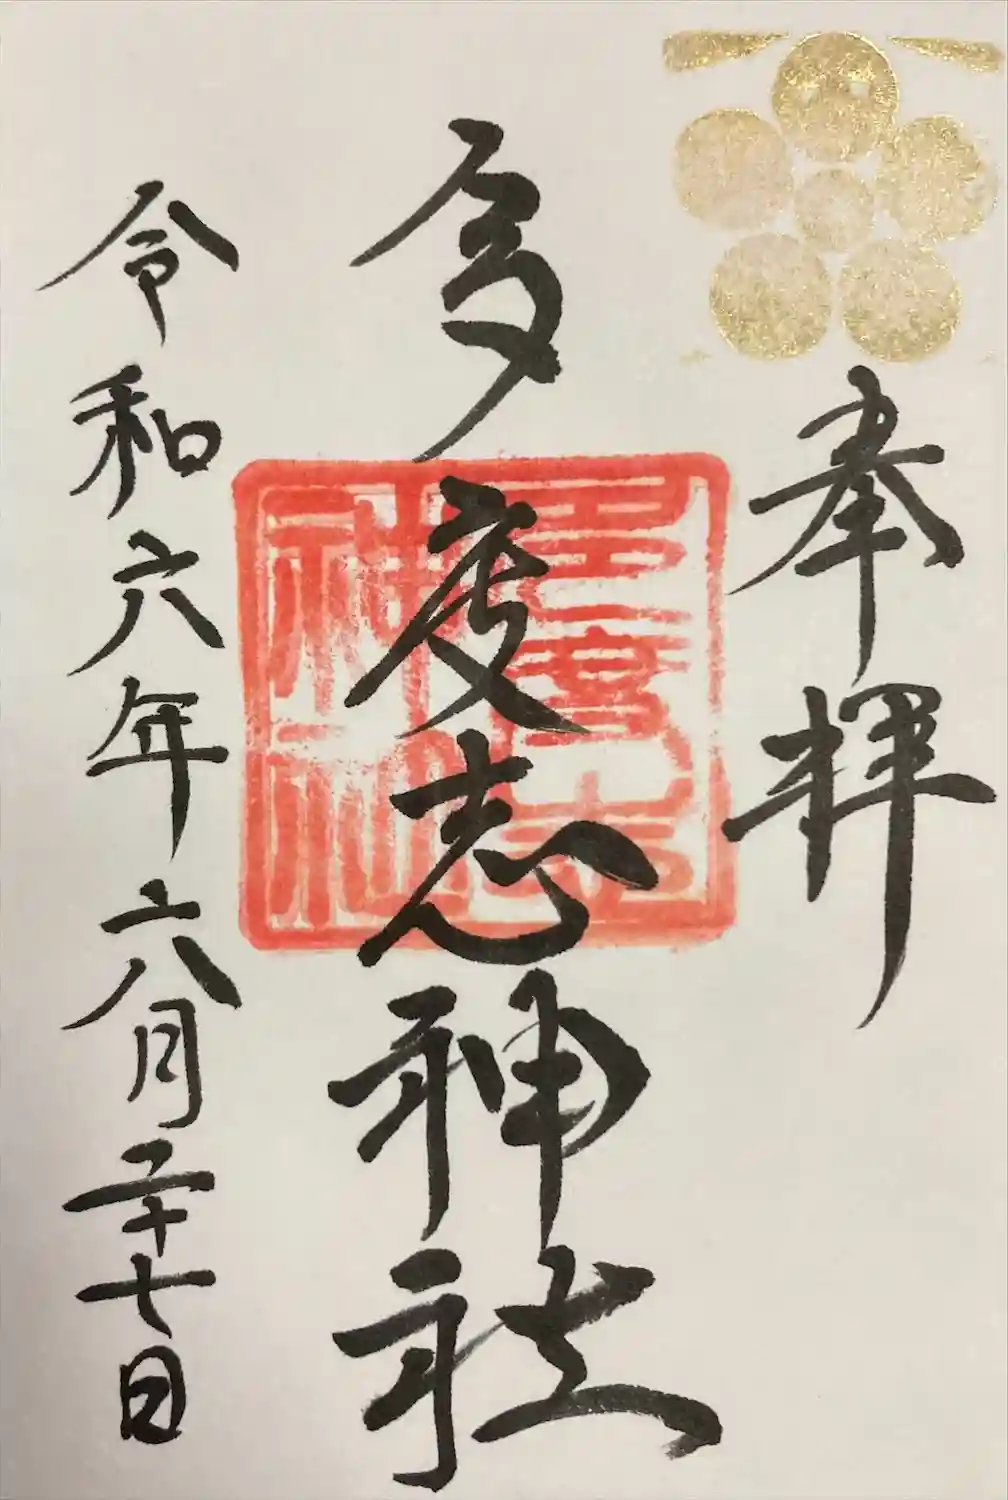 奉拝
多度志神社
多度志
神社
令和六年六月二十七日